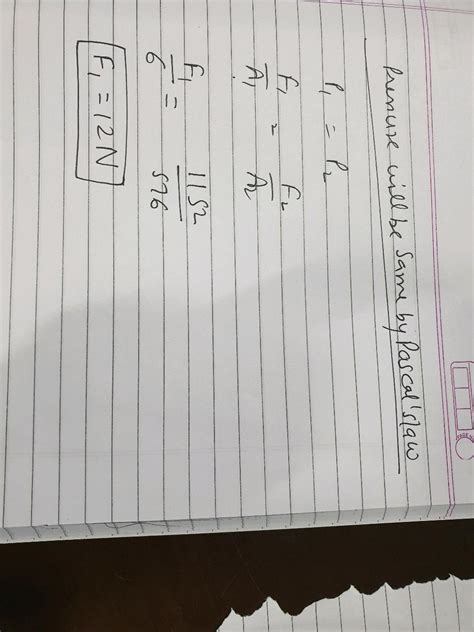 Pressure will be Same by Pascal's law
P₁ = P₂
F₁/A₁ = F₂/A₂
F₁/6 = 1152/576
F₁ = 12N